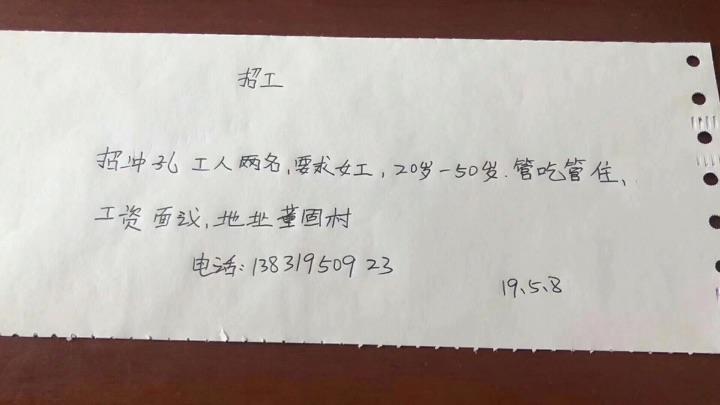 招工
招冲孔工人两名,要求女工,20岁-50岁.管吃管住、
工资面议,地址董固村
电话:13831950923
19.5.8